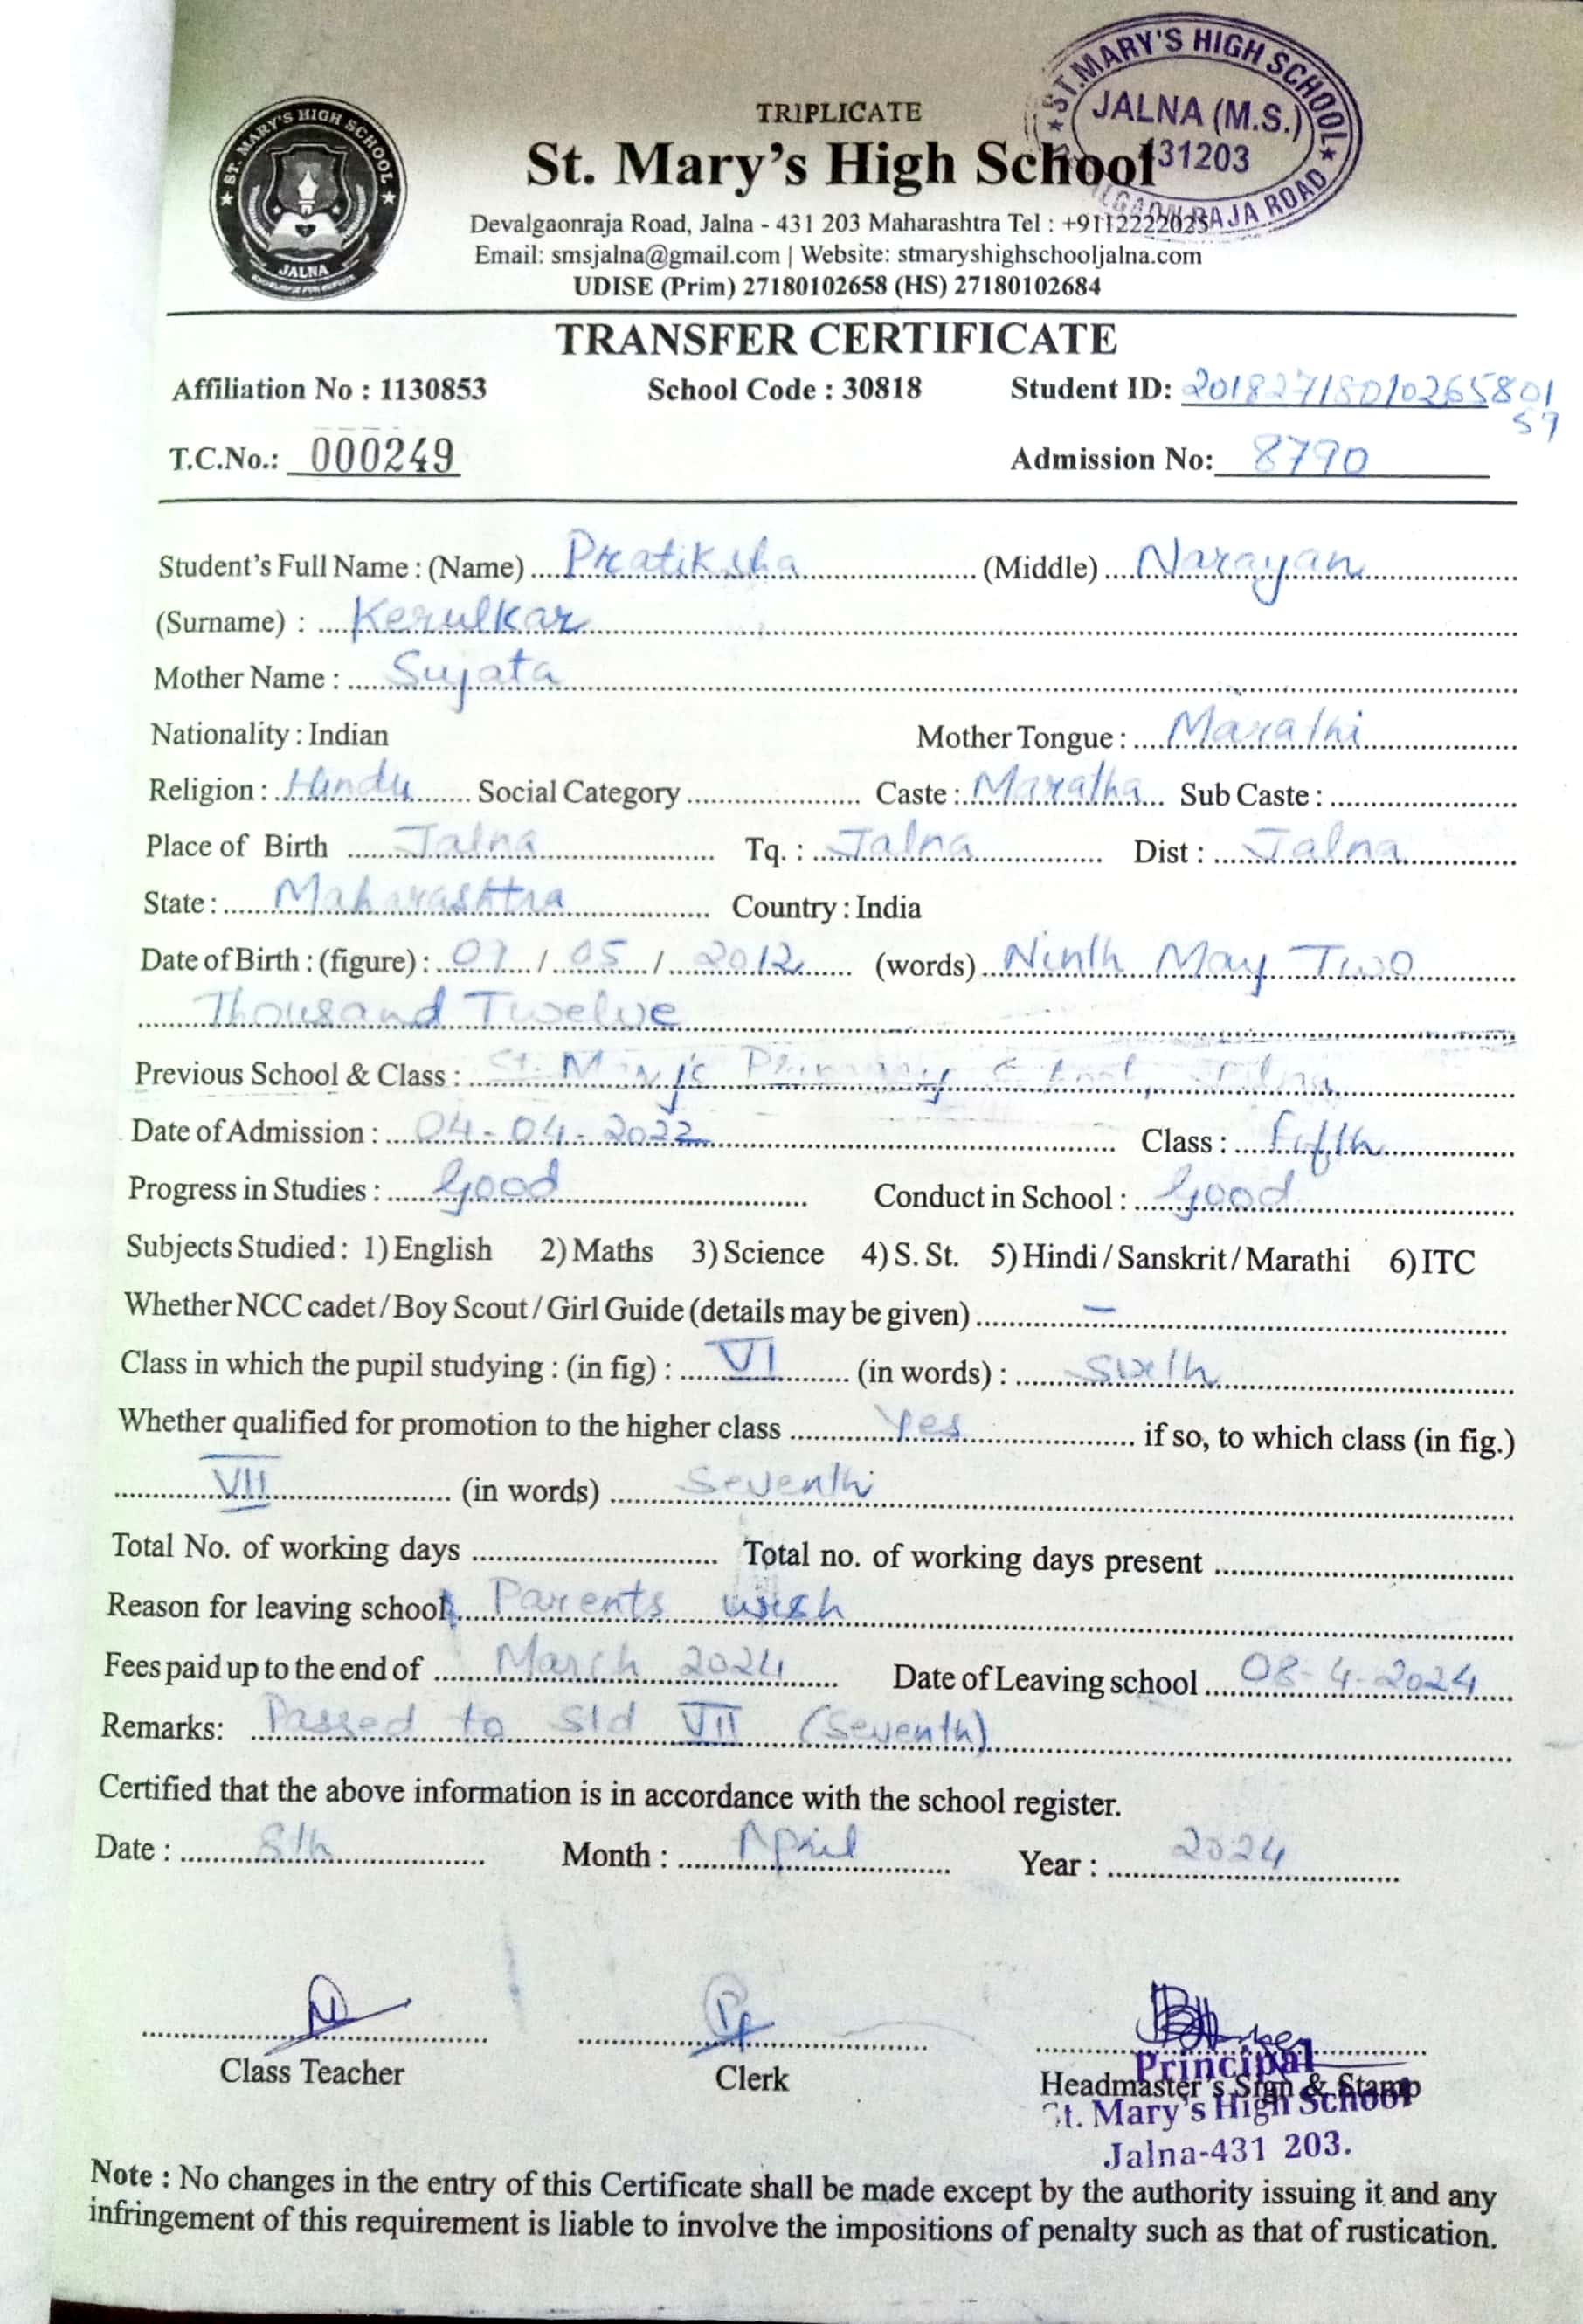 ST. MARY'S HIGH SCHOOL
JALNA
ST. MARY'S HIGH SCHOOL
JALNA (M.S.)
31203
RAJA ROAD
TRIPLICATE
St. Mary's High School
Devalgaonraja Road, Jalna - 431 203 Maharashtra Tel : +9112222025
Email: smsjalna@gmail.com | Website: stmaryshighschooljalna.com
UDISE (Prim) 27180102658 (HS) 27180102684
TRANSFER CERTIFICATE
Affiliation No : 1130853 School Code : 30818 Student ID: 20182718010265801
59
T.C.No.: 000249 Admission No: 8790
Student's Full Name : (Name) Pratiksha (Middle) Narayan
(Surname) : Kerulkar
Mother Name : Sujata
Nationality : Indian Mother Tongue : Marathi
Religion : Hindu Social Category Caste : Maratha Sub Caste :
Place of Birth Jalna Tq. : Jalna Dist : Jalna
State : Maharashtra Country : India
Date of Birth : (figure) : 09 / 05 / 2012 (words) Ninth May Two
Thousand Twelve
Previous School & Class : St. Mary's Primary School, Jalna
Date of Admission : 04-04-2022 Class : Fifth
Progress in Studies : Good Conduct in School : Good
Subjects Studied : 1) English 2) Maths 3) Science 4) S. St. 5) Hindi / Sanskrit / Marathi 6) ITC
Whether NCC cadet / Boy Scout / Girl Guide (details may be given) —
Class in which the pupil studying : (in fig) : VI (in words) : Sixth
Whether qualified for promotion to the higher class Yes if so, to which class (in fig.)
VII (in words) Seventh
Total No. of working days Total no. of working days present
Reason for leaving school Parents wish
Fees paid up to the end of March 2024 Date of Leaving school 08-4-2024
Remarks: Passed to Std VII (Seventh)
Certified that the above information is in accordance with the school register.
Date : 8th Month : April Year : 2024
Class Teacher Clerk Headmaster's Sign & Stamp
Principal
St. Mary's High School
Jalna-431 203.
Note : No changes in the entry of this Certificate shall be made except by the authority issuing it and any
infringement of this requirement is liable to involve the impositions of penalty such as that of rustication.